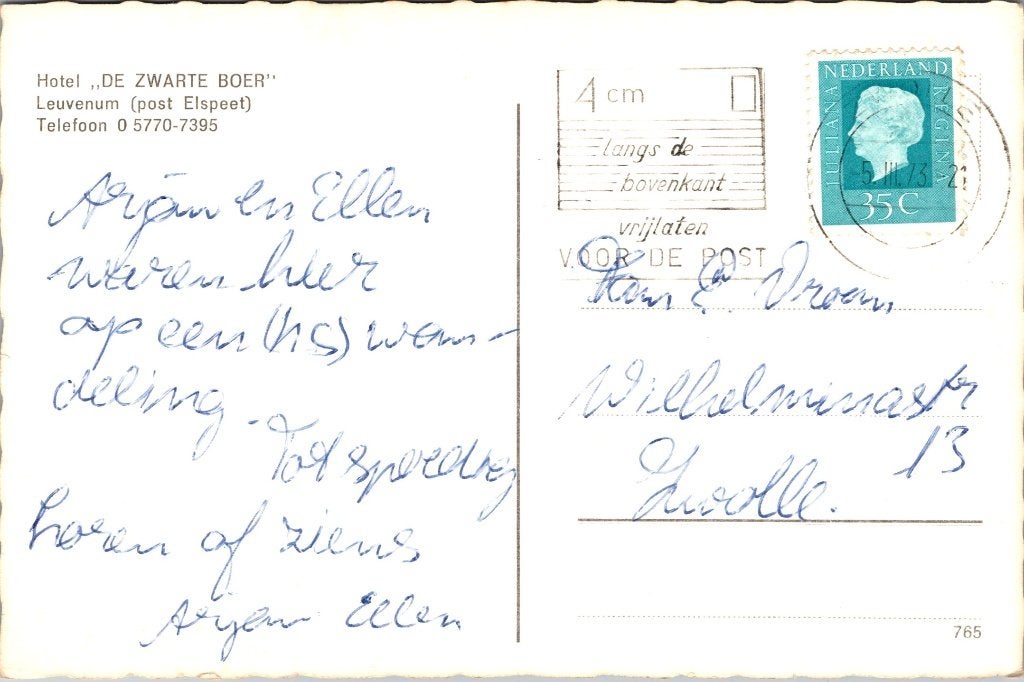 Hotel „DE ZWARTE BOER"
Leuvenum (post Elspeet)
Telefoon 0 5770-7395
Arjan en Ellen
waren hier
op een (ns) wan-
deling.
Tot spoedig
horen of ziens
Arjan Ellen
4 cm
langs de
bovenkant
vrijlaten
VOOR DE POST
NEDERLAND
JULIANA REGINA
35 C
-5.III.73 21
Fam
Wilhelminastr
13
Zwolle.
765